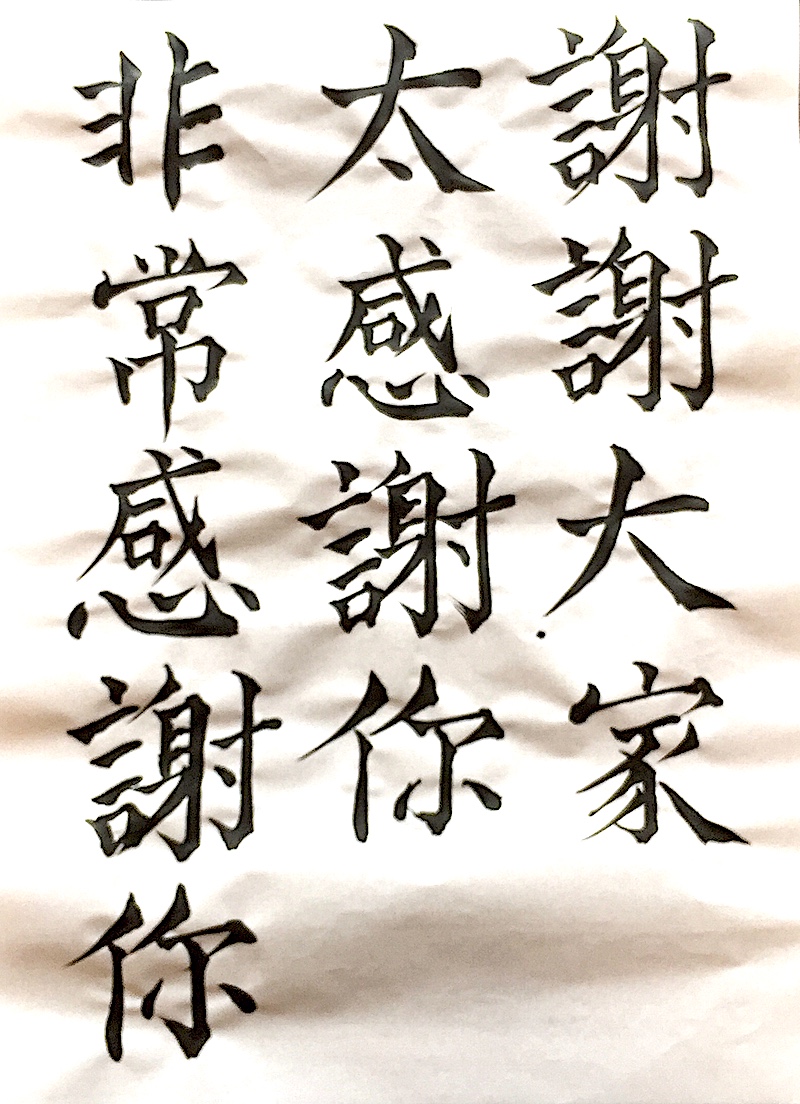 謝謝大家
太感謝你
非常感謝你